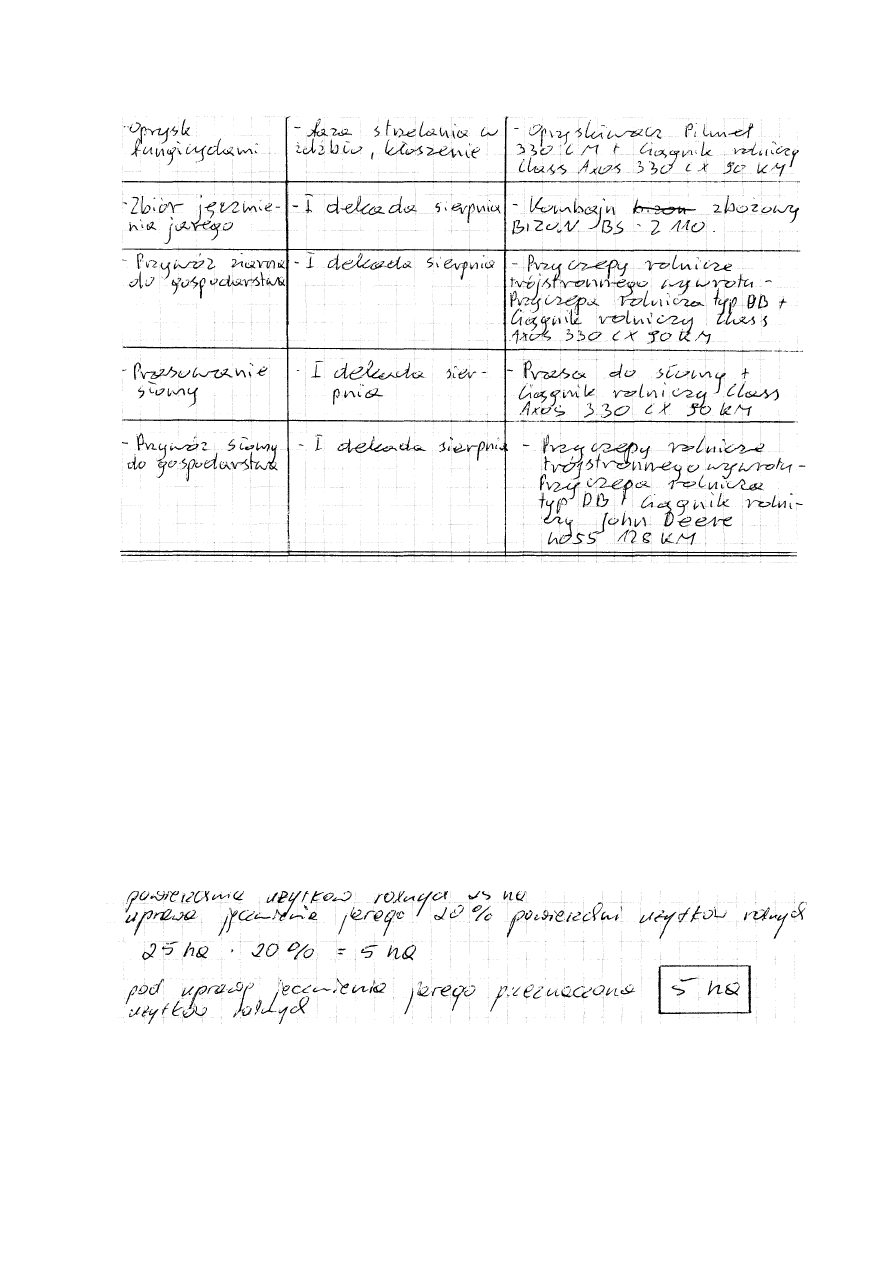 - Oprysk
fungicydami
- faza strzelania w
źdźbło, kłoszenie
- Opryskiwacz Pilmet
330 CM + Ciągnik rolniczy
Class Axos 330 CX 90 KM
- Zbiór jęczmie-
nia jarego
- I dekada sierpnia
- Kombajn bizon zbożowy
BIZON BS - Z 110.
- Przywóz ziarna
do gospodarstwa
- I dekada sierpnia
- Przyczepy rolnicze
trójstronnego wywrotu -
Przyczepa rolnicza typ DB +
Ciągnik rolniczy Class
Axos 330 CX 90 KM
- Prasowanie
słomy
- I dekada sier-
pnia
- Prasa do słomy +
Ciągnik rolniczy Class
Axos 330 CX 90 KM
- Przywóz słomy
do gospodarstwa
- I dekada sierpnia
- Przyczepy rolnicze
trójstronnego wywrotu -
Przyczepa rolnicza
typ DB + Ciągnik rolni-
czy John Deere
128 KM
powierzchnia użytków rolnych 25 ha
uprawa jęczmienia jarego 20% powierzchni użytków rolnych
25 ha · 20% = 5 ha
pod uprawę jęczmienia jarego przeznaczono 5 ha
użytków rolnych